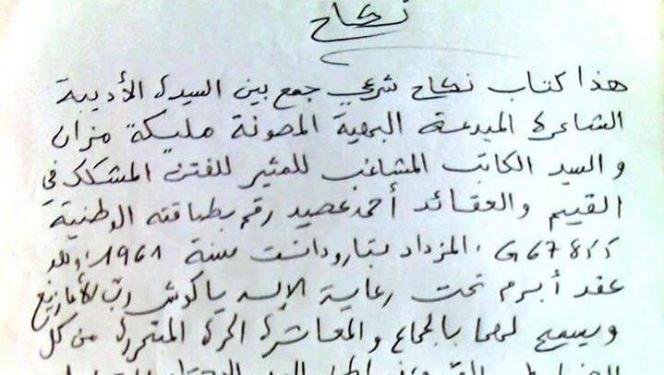 نكاح
هذا كتاب نكاح شرعي جمع بين السيدة الأديبة
الشاعرة المبدعة البهية المصونة مليكة مزان
والسيد الكاتب المشاغب المثير للفتن المشكك في
القيم والعقائد أحمد عصيد رقم بطاقته الوطنية
المزداد بتارودانت سنة 1961. وهو
عقد أبرم تحت رعاية الإله ياكوش رب الأمازيغ
ويسمح لهما بالجماع والمعاشرة الحرة المتحررة من كل